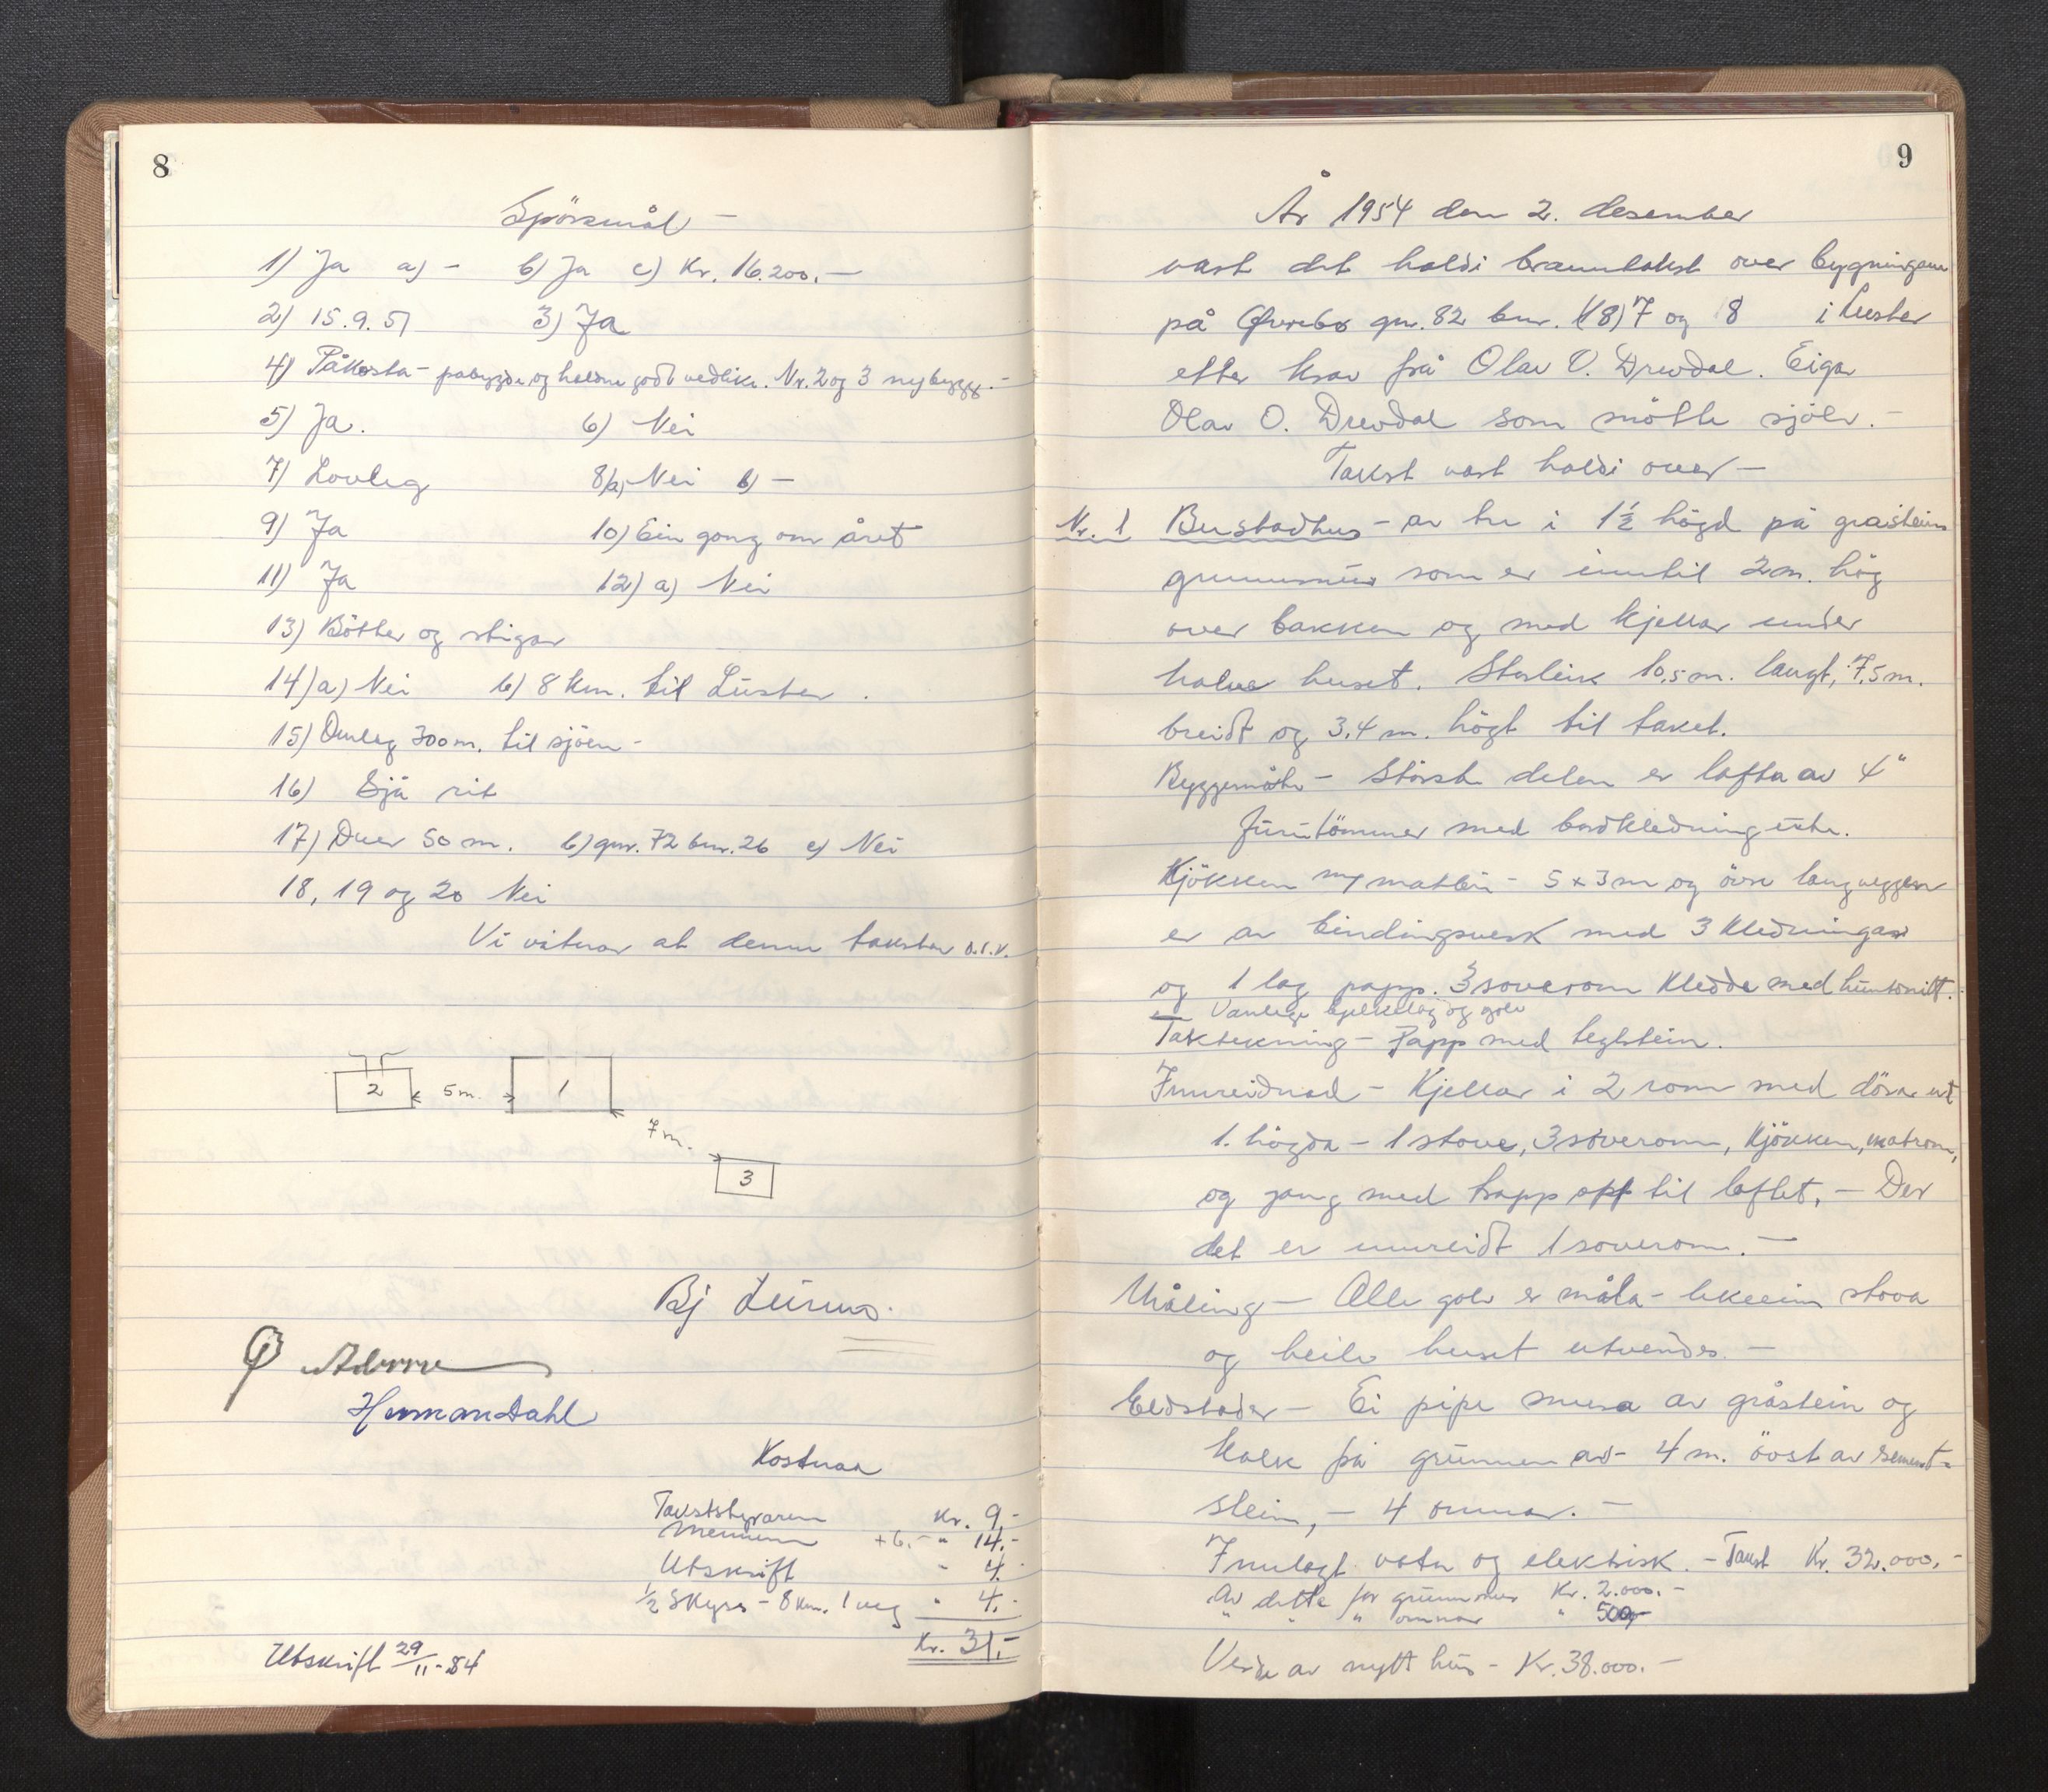 8
Spörsmål -
1) Ja a) - b) Ja c) Kr. 16.200.-
2) 15.9.51 3) Ja
4) Påkosta - påbygde og haldne godt vedlike. Nr. 2 og 3 nybygg. -
5) Ja. 6) Nei
7) Lovleg 8/a) Nei b) -
9) Ja 10) Ein gong om året
11) Ja 12) a) Nei
13) Bötter og stigar
14) a) Nei b) 8 km. til Luster.
15) Omleg 300 m. til sjöen -
16) Sjå rit
17) Over 50 m. b) gnr. 72 bnr. 26 c) Nei
18, 19 og 20 Nei
Vi vitnar at denne taksten o.s.v.
2 5 m. 1
7 m.
3
Bj
Herman Dahl
Kostnad
Takststyraren Kr. 9.-
Mennene +6.- " 14.-
Utskrift " 4.
1/2 Skyss - 8 km. 1 veg " 4.-
Kr. 31.-
Utskrift 29/11-54
9
År 1954 den 2. desember
vart det haldi branntakst over bygningane
på Øvrebø gnr. 82 bnr. (8) 7 og 8 i Luster
etter krav frå Olav O. Drevdal. Eigar
Olav O. Drevdal som mötte sjölv. -
Takst vart haldi over -
Nr. 1 Bustadhus - av tre i 1 1/2 högd på gråsteins
grunnmur som er inntil 2 m. hög
over bakken og med kjellar under
halve huset. Storleik 10,5 m. langt, 7,5 m.
breidt og 3,4 m. högt til taket.
Byggemåte - Störste delen er lafta av 4"
furutömmer med bordkledning ute.
Kjökken m/ matbu - 5 x 3 m og övre langveggen
er av bindingsverk med 3 kledningar
og 1 lag papp. 3 soverom kledde med huntonitt.
Vanlege bjelkelag og golv
Taktekning - Papp med teglstein.
Innreidnad - Kjellar i 2 rom med dörar ut
1. högda - 1 stove, 3 soverom, kjökken, matrom,
og gang med trapp opp til loftet, - Der
det er innreidt 1 soverom. -
Måling - Alle golv er måla - likeeins stova
og heile huset utvendes. -
Eldstader - Ei pipe mura av gråstein og
kalk frå grunnen av - 4 m. övst av sement-
stein, - 4 omnar. -
Innlagt vatn og elektrisk. - Takst Kr. 32.000.-
Av dette for grunnmur Kr. 2.000.-
" " " omnar " 500,-
Verde av nytt hus - Kr. 38.000.-